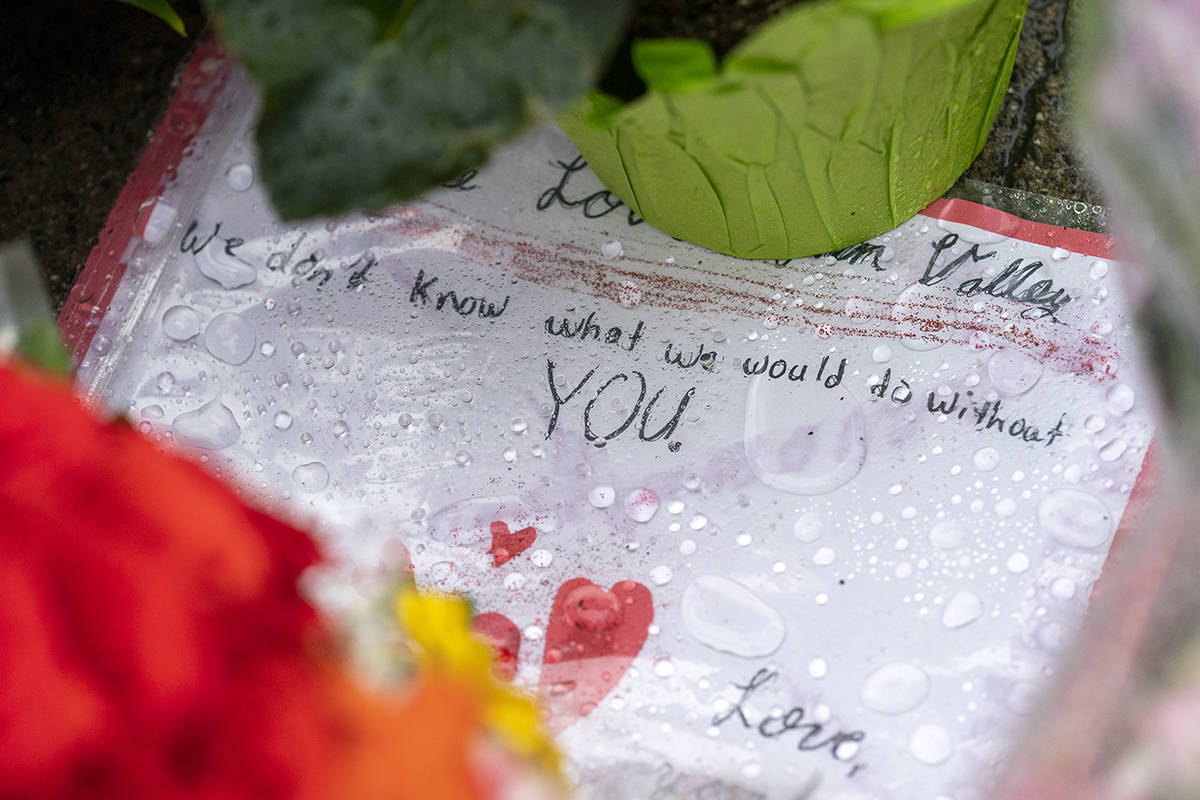 Valley
We don't know what we would do without
YOU.
Love,